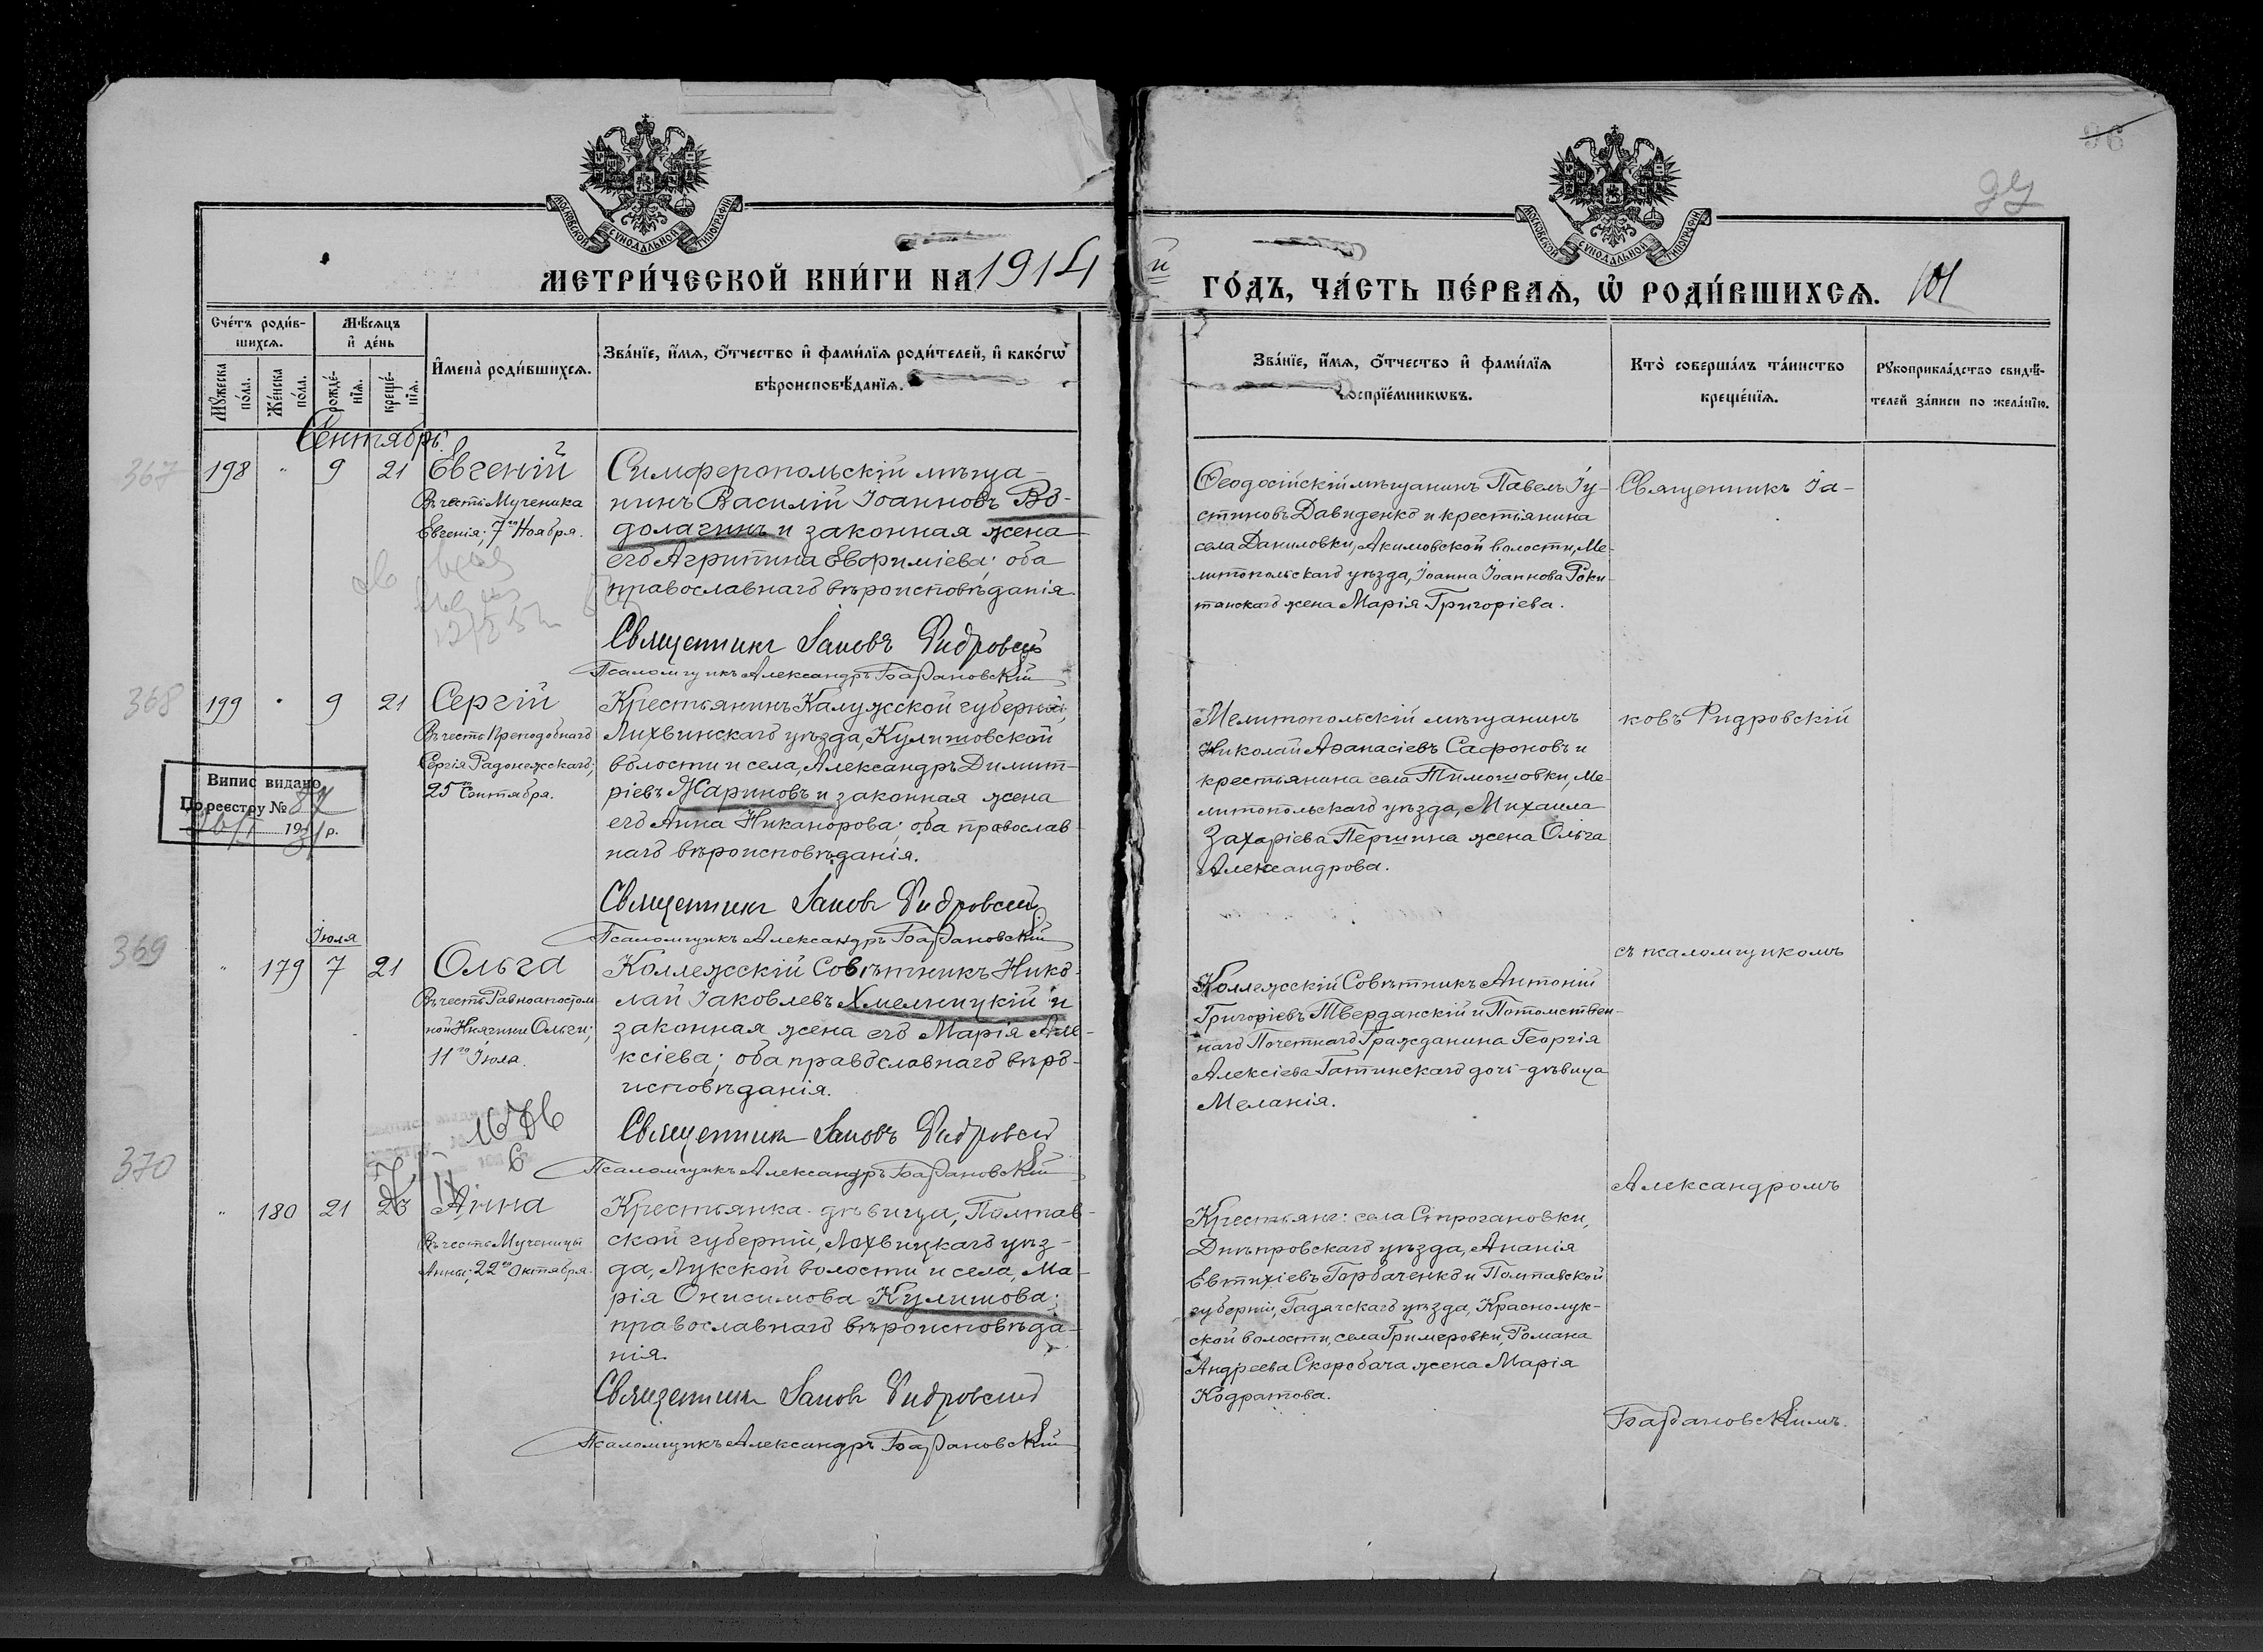 96
99
МОСКОВСКОЙ СУНОДАЛЬНОЙ ТИПОГРАФІИ
МОСКОВСКОЙ СУНОДАЛЬНОЙ ТИПОГРАФІИ
МЕТРИ́ЧЕСКОЙ КНИ́ГИ НА 1914
й ГО́ДЪ, ЧА́СТЬ ПЕ́РВАѦ, Ѡ҆ РОДИ́ВШИХСѦ. 101
Сче́тъ роди́в-
шихсѧ.
Мѣ́сѧцъ
и҆ де́нь
Мꙋ́жеска
по́ла.
Же́нска
по́ла.
рожде́-
нїѧ.
креще́-
нїѧ.
И҆мена̀ роди́вшихсѧ.
Зва́нїе, и҆́мѧ, ѻ҆́тчество и҆ фами́лїѧ роди́телей, и҆ како́гѡ
вѣроисповѣ́данїѧ.
Зва́нїе, и҆́мѧ, ѻ҆́тчество и҆ фами́лїѧ
воспрїе́мникѡвъ.
Кто̀ соверша́лъ та́инство
креще́нїѧ.
Рꙋкоприкла́дство свидѣ́-
телей за́писи по жела́нїю.
Сентябрь.
367
198 " 9 21 Евгеній
Въ честь Мученика
Евгенія; 7го Ноября.
Симферопольскій мѣща-
нинъ Василій Іоанновъ Во-
долагинъ и законная жена
его Агрипина Евфиміева; оба
православнаго вѣроисповѣданія.
Священникъ Іаковъ Фидровскій
Псаломщикъ Александръ Баздановскій
Ѳеодосійскій мѣщанинъ Павелъ Іу-
стиновъ Давиденко и крестьянина
села Даниловки, Акимовской волости, Ме-
литопольскаго уѣзда, Іоанна Іоаннова Роки-
танскаго жена Марія Григоріева.
Священникъ Іа-
368
199 " 9 21 Сергій
Въ честь Преподобнаго
Сергія Радонежскаго;
25го Сентября.
Випис видано
По реестру № 87
19 31 р.
Крестьянинъ Калужской губерніи,
Лихвинскаго уѣзда, Кулешовской
волости и села, Александръ Димит-
ріевъ Жариновъ и законная жена
его Анна Никанорова; оба православ-
наго вѣроисповѣданія.
Священникъ Іаковъ Фидровскій
Псаломщикъ Александръ Баздановскій
Мелитопольскій мѣщанинъ
Николай Аѳанасіевъ Сафоновъ и
крестьянина села Тимошовки, Ме-
литопольскаго уѣзда, Михаила
Захаріева Першина жена Ольга
Александрова.
ковъ Фидровскій
369
Іюля
" 179 7 21 Ольга
Въ честь Равноапостоль-
ной Княгини Ольги;
11го Іюля.
Коллежскій Совѣтникъ Нико-
лай Іаковлевъ Хмельницкій и
законная жена его Марія Але-
ксіева; оба православнаго вѣро-
исповѣданія.
Священникъ Іаковъ Фидровскій
Псаломщикъ Александръ Баздановскій
съ псаломщикомъ
Коллежскій Совѣтникъ Антоній
Григоріевъ Твердянскій и Потомствен-
наго Почетнаго Гражданина Георгія
Алексіева Гатинскаго дочь-дѣвица
Меланія.
370
" 180 21 23 Анна
Въ честь Мученицы
Анны; 22го Октября.
Крестьянка-дѣвица, Полтав-
ской губерніи, Лохвицкаго уѣз-
да, Лукской волости и села, Ма-
рія Онисимова Кулишова;
православнаго вѣроисповѣда-
нія.
Священникъ Іаковъ Фидровскій
Псаломщикъ Александръ Баздановскій
Александромъ
Крестьяне: села Строгановки,
Днѣпровскаго уѣзда, Ананія
Евтихіевъ Горбаченко и Полтавской
губерніи, Гадячскаго уѣзда, Краснолук-
ской волости, села Гримеровки, Романа
Андреева Скоробача жена Марія
Кодратова.
Баздановскимъ.